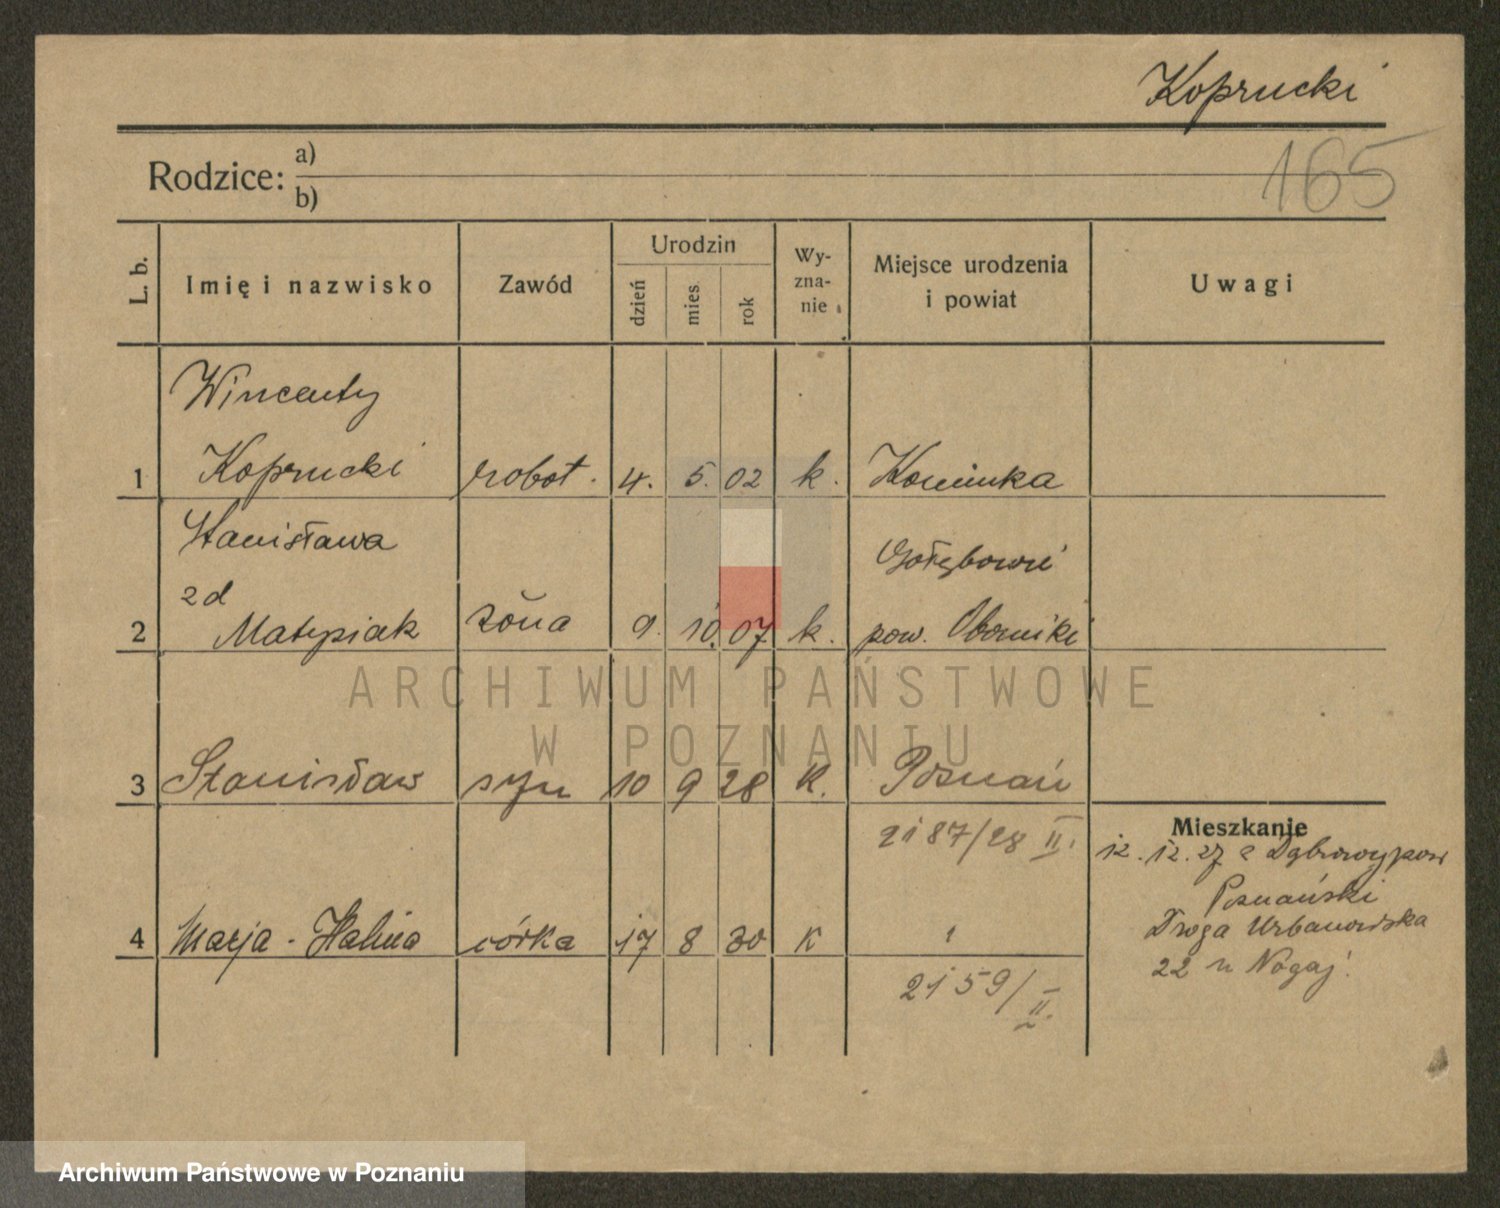 Koprucki
165
Rodzice: a)
b)
L. b.
Imię i nazwisko
Zawód
Urodzin
dzień
mies.
rok
Wy-
zna-
nie
Miejsce urodzenia
i powiat
Uwagi
Wincenty
1 Koprucki robot. 4. 5. 02 k.
Stanisława
zd
2 Matysiak żona 9. 10. 07 k. pow. Oborniki
3 Stanisław syn 10 9 28 K. Poznań
2187/28 II.
4 Marja - Halina córka 17 8 30 K
2159/II.
Mieszkanie
12. 12. 27 z Dąbrowy pow
Poznański
Droga Urbanowska
22 u Nogaj.
ARCHIWUM PAŃSTWOWE
W POZNANIU
Archiwum Państwowe w Poznaniu